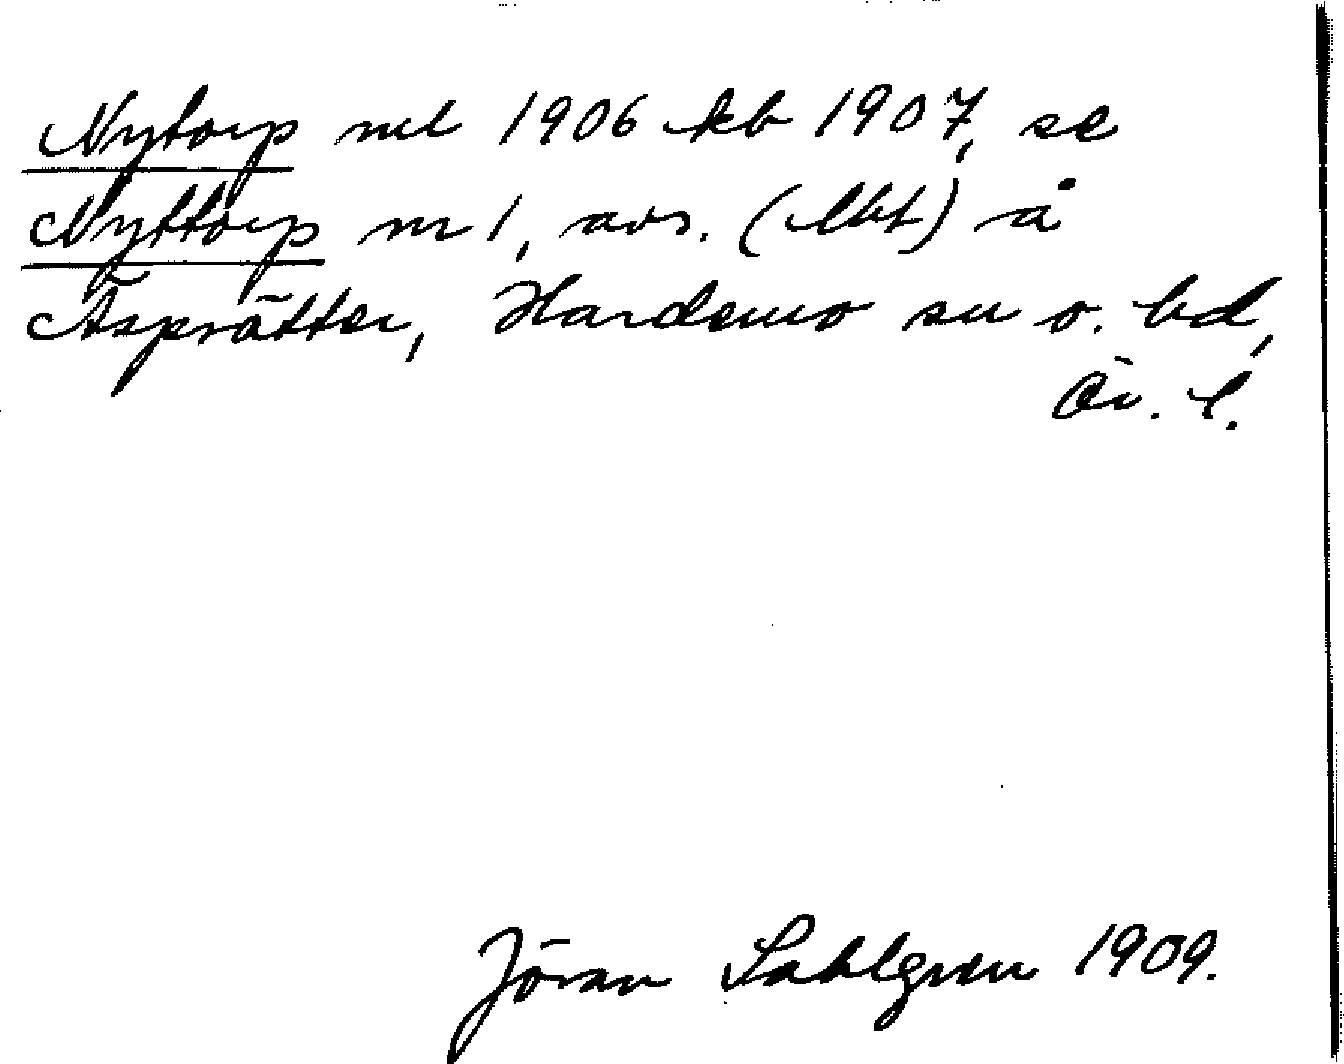 Nytorp ml 1906 kb 1907, se
Nyttorp nr 1, avs. (lht) å
Äsprätter, Hardemo sn o. hd,
Ör. l.
Jöran Sahlgren 1909.